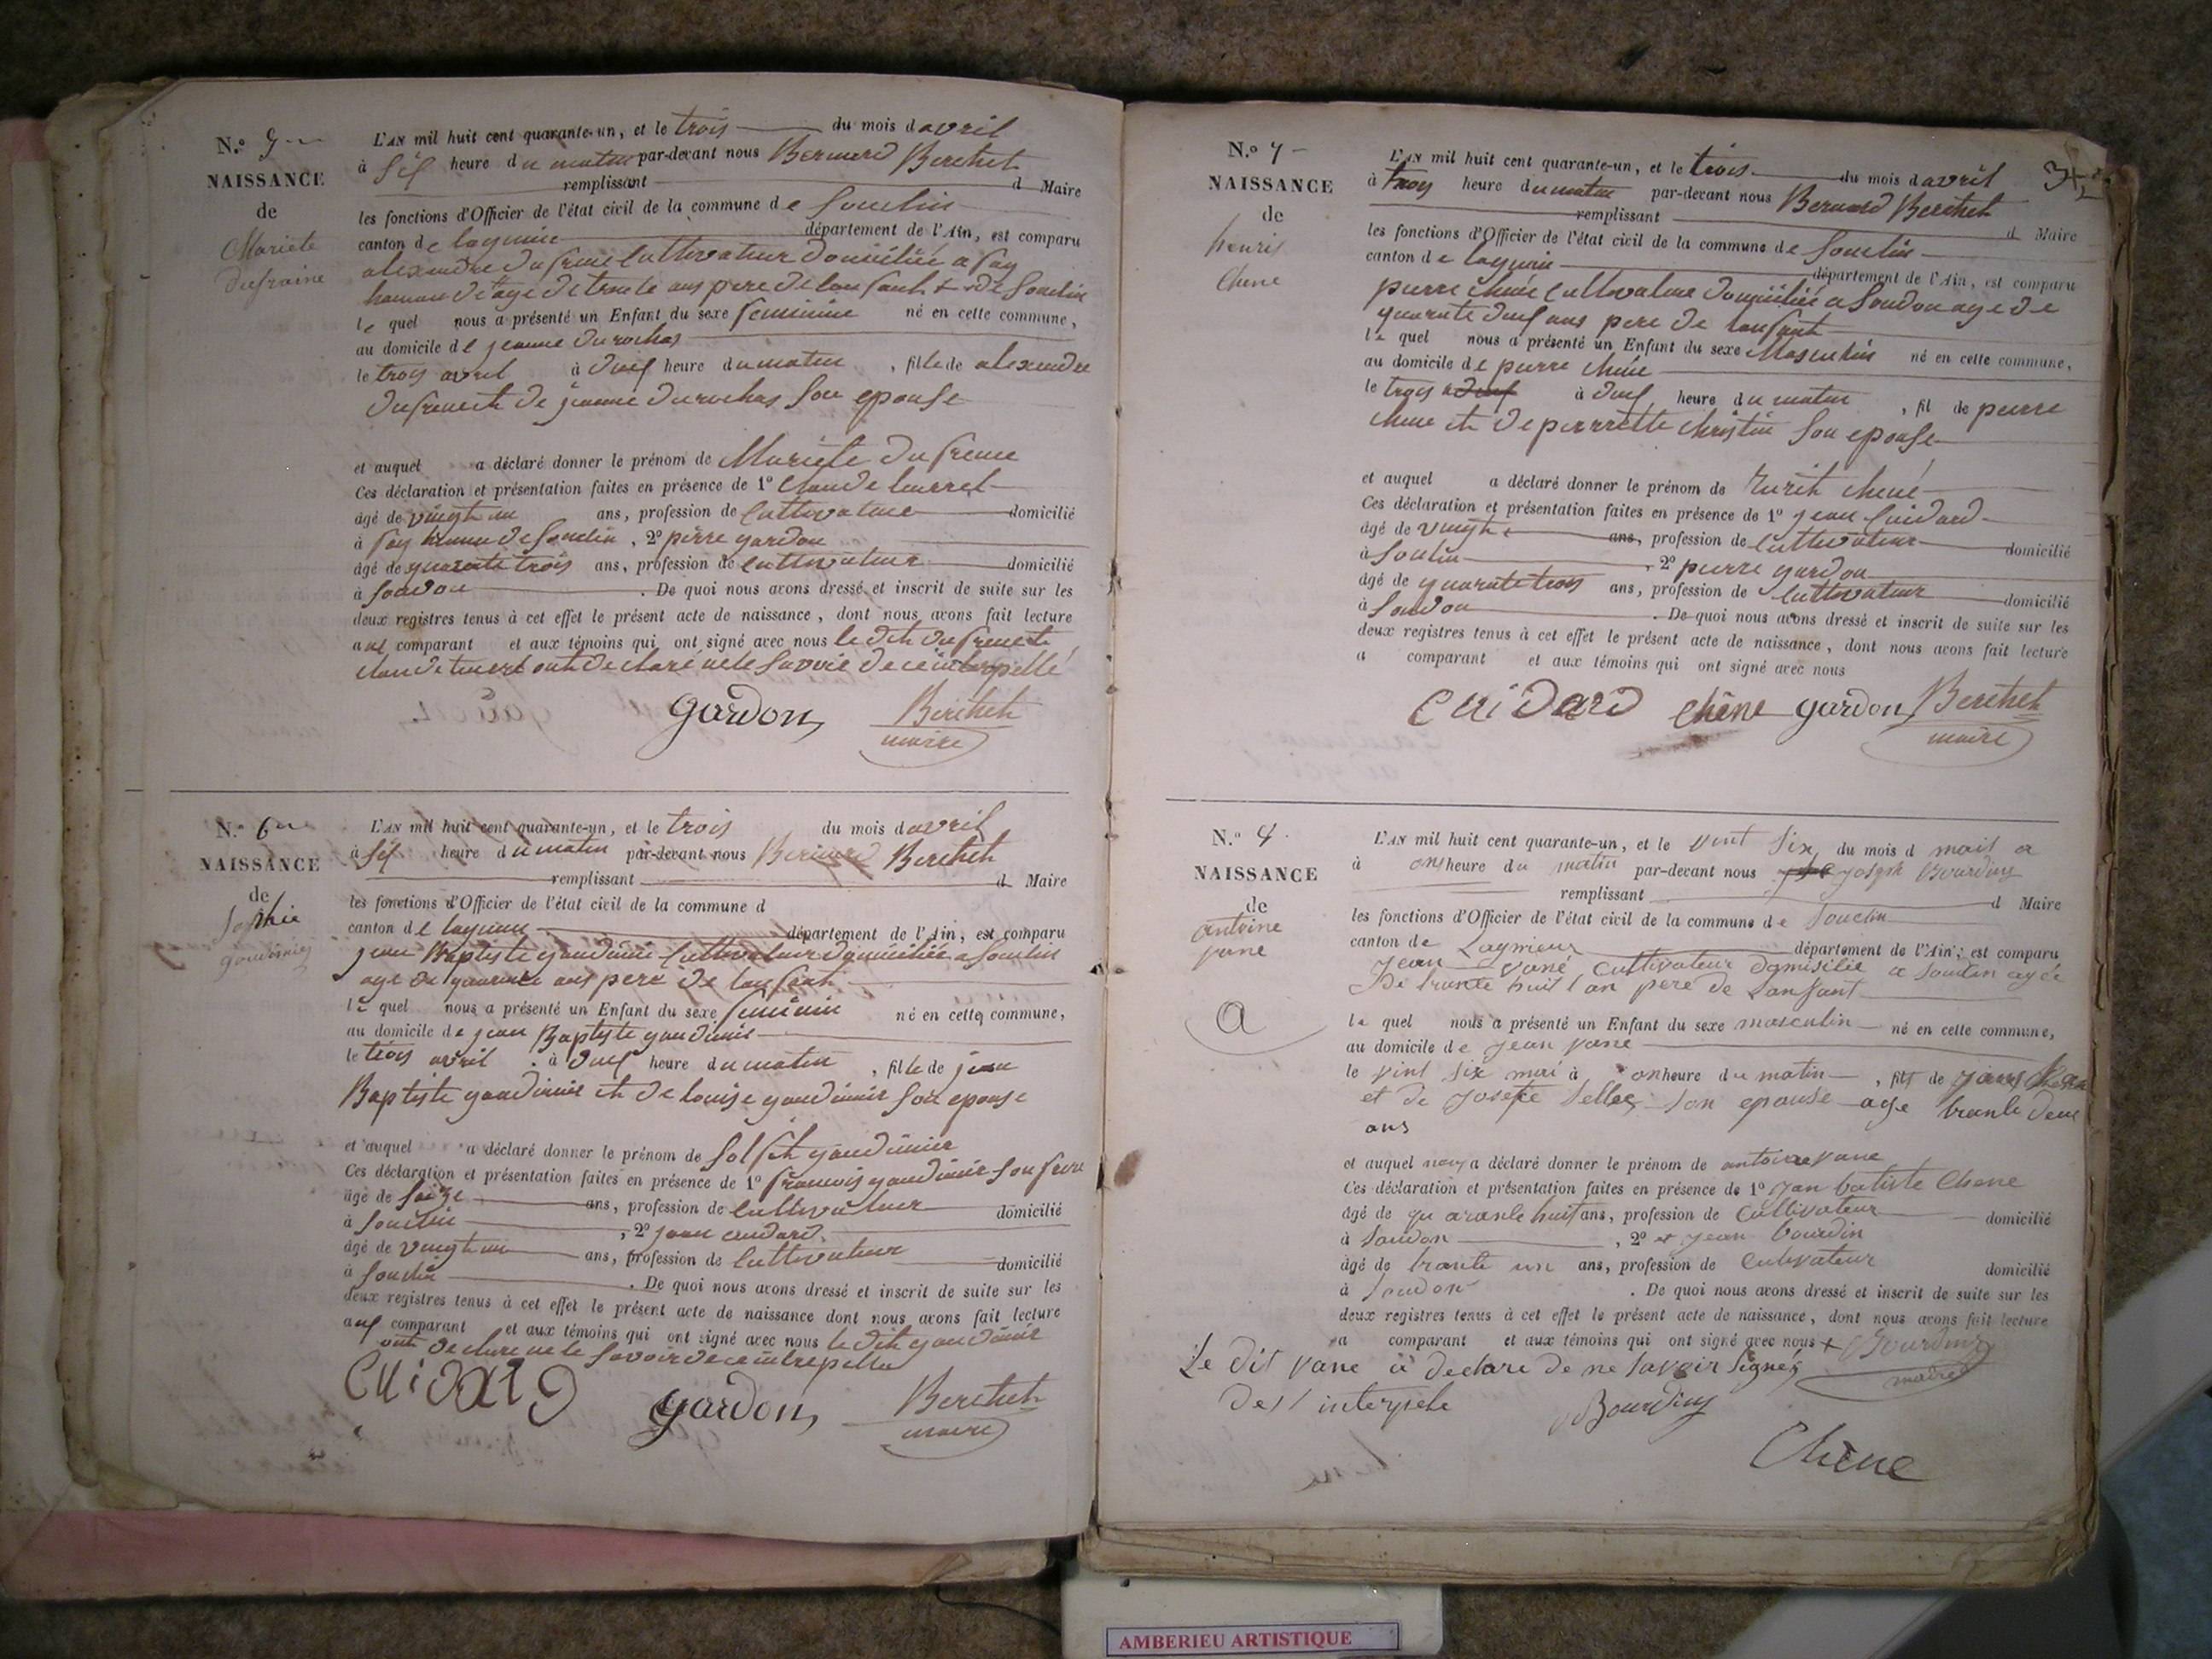 N.o 5
NAISSANCE
de
Mariete
dufraine
L'AN mil huit cent quarante-un, et le trois du mois d avril
à six heure du matin par-devant nous Bernard Berthet
remplissant d Maire
les fonctions d'Officier de l'état civil de la commune de Souclin
canton de lagnieu département de l'Ain, est comparu
alexandre dufrene Cultivateur domicilié a fay
hameau de agé de trente ans pere de lanfant + de Souclin
le quel nous a présenté un Enfant du sexe feminine né en cette commune,
au domicile de jeanne durochas
le trois avril à deux heure du matin, fille de alexendre
dufrene et de jeanne durochas son epouse
et auquel a déclaré donner le prénom de Mariete dufrene
Ces déclaration et présentation faites en présence de 1o Claude
âgé de vingt un ans, profession de Cultivateur domicilié
à fay hameau de Souclin, 2o pierre gardon
âgé de quarante trois ans, profession de cultivateur domicilié
à Soudon. De quoi nous avons dressé et inscrit de suite sur les
deux registres tenus à cet effet le présent acte de naissance, dont nous avons fait lecture
aux comparant et aux témoins qui ont signé avec nous le dit dufrene et
Claude ont declaré ne le savoir de ce interpellé
gardon Berthet
maire
N.o 6
NAISSANCE
de
Sophie
goudinier
L'AN mil huit cent quarante-un, et le trois du mois d avril
à six heure du matin par-devant nous Bernard Berthet
remplissant d Maire
les fonctions d'Officier de l'état civil de la commune d
canton de lagnieu département de l'Ain, est comparu
jean Baptiste goudinié Cultivateur domicilié a Souclin
age de quarante ans pere de lanfant
le quel nous a présenté un Enfant du sexe feminin né en cette commune,
au domicile de jean Baptiste goudinie
le trois avril à deux heure du matin, fille de jean
Baptiste goudinié et de louise goudinier son epouse
et auquel a déclaré donner le prénom de goudinier
Ces déclaration et présentation faites en présence de 1o francois goudinier son frere
âgé de seize ans, profession de Cultivateur domicilié
à Souclin, 2o jean cuidard
âgé de vingt un ans, profession de Cultivateur domicilié
à Souclin. De quoi nous avons dressé et inscrit de suite sur les
deux registres tenus à cet effet le présent acte de naissance dont nous avons fait lecture
aux comparant et aux témoins qui ont signé avec nous le dit goudinier
ont declare ne le savoir de ce interpelle
CUiDARD gardon Berthet
maire
34
N.o 7
NAISSANCE
de
henris
Chene
L'AN mil huit cent quarante-un, et le trois du mois d avril
à troy heure du matin par-devant nous Bernard Berthet
remplissant d Maire
les fonctions d'Officier de l'état civil de la commune de Souclin
canton de lagnieu département de l'Ain, est comparu
pierre chene Cultivateur domicilié a Soudon age de
quarante deux ans pere de lanfant
le quel nous a présenté un Enfant du sexe Masculin né en cette commune,
au domicile de pierre chene
le trois à deux heure du matin, fil de pierre
chene et de pierrette christin son epouse
et auquel a déclaré donner le prénom de chené
Ces déclaration et présentation faites en présence de 1o jean Cuidard
âgé de vingt ans, profession de Cultivateur domicilié
à Souclin, 2o pierre gardon
âgé de quarante trois ans, profession de Cultivateur domicilié
à Soudon. De quoi nous avons dressé et inscrit de suite sur les
deux registres tenus à cet effet le présent acte de naissance, dont nous avons fait lecture
a comparant et aux témoins qui ont signé avec nous
CUiDARD chêne gardon Berthet
maire
N.o
NAISSANCE
de
antoine
vane
a
L'AN mil huit cent quarante-un, et le vint six du mois d mait a
à ons heure du matin par-devant nous joseph Bourdin
remplissant d Maire
les fonctions d'Officier de l'état civil de la commune de Souclin
canton de Lagnieux département de l'Ain; est comparu
Jean vané Cultivateur domisilié a Souclin agée
De trante huit an pere de Lanfant
le quel nous a présenté un Enfant du sexe masculin né en cette commune,
au domicile de Jean vane
le vint six mai à on heure du matin, fils de
et de Josefte son epouse age trante deux
ans
et auquel nous a déclaré donner le prénom de antoine vane
Ces déclaration et présentation faites en présence de 1o Jan batiste Chene
âgé de quarante huit ans, profession de Cultivateur domicilié
à Soudon, 2o et Jean bourdin
âgé de trante un ans, profession de Cultivateur domicilié
à Soudon. De quoi nous avons dressé et inscrit de suite sur les
deux registres tenus à cet effet le présent acte de naissance, dont nous avons fait lecture
a comparant et aux témoins qui ont signé avec nous + Bourdin
maire
Le dit vane a declare de ne savoir signés
Bourdin
Chene
AMBERIEU ARTISTIQUE